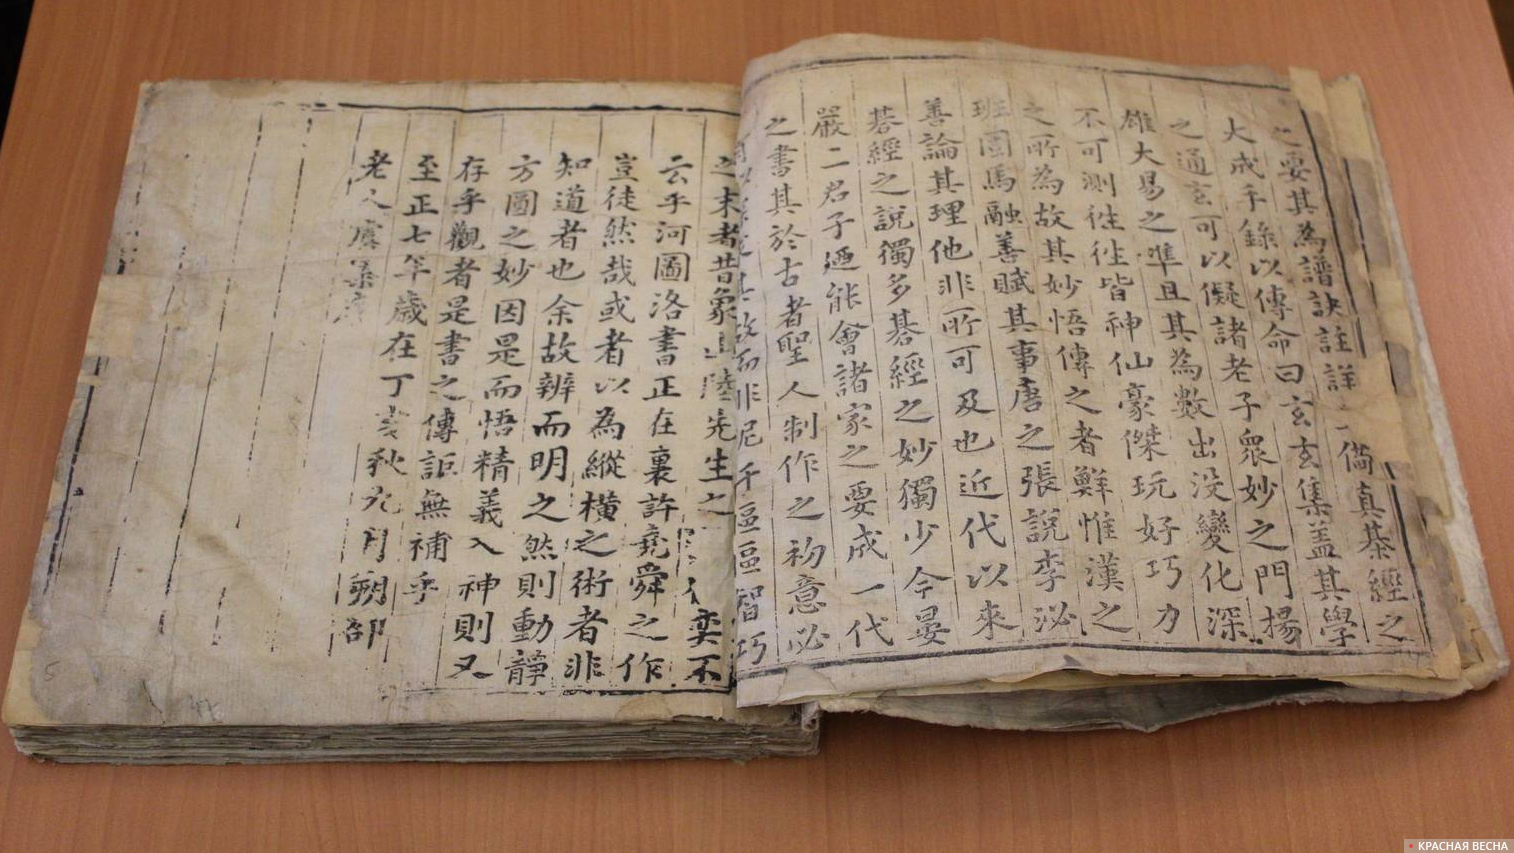 備真棊經之
之要其為譜訣註詳
大成手錄以傳命曰玄玄集盖其學
之通玄可以儗諸老子衆妙之門揚
雄大易之準且其為數出没變化深
不可測徃徃皆神仙豪傑玩好巧力
之所為故其妙悟傳之者鮮惟漢之
班固馬融善賦其事唐之張說李泌
善論其理他非所可及也近代以來
棊經之說獨多棊經之妙獨少今晏
嚴二君子廼能會諸家之要成一代
之書其於古者聖人制作之初意必
故而非尼千區區智巧
之末者昔象山陸先生之 奕不
云乎河圖洛書正在裏許堯舜之作
豈徒然哉或者以為縱橫之術者非
知道者也余故辨而明之然則動靜
方圓之妙因是而悟精義入神則又
存乎觀者是書之傳詎無補乎
至正七年歲在丁亥秋九月朔邵
老人虞集序
КРАСНАЯ ВЕСНА